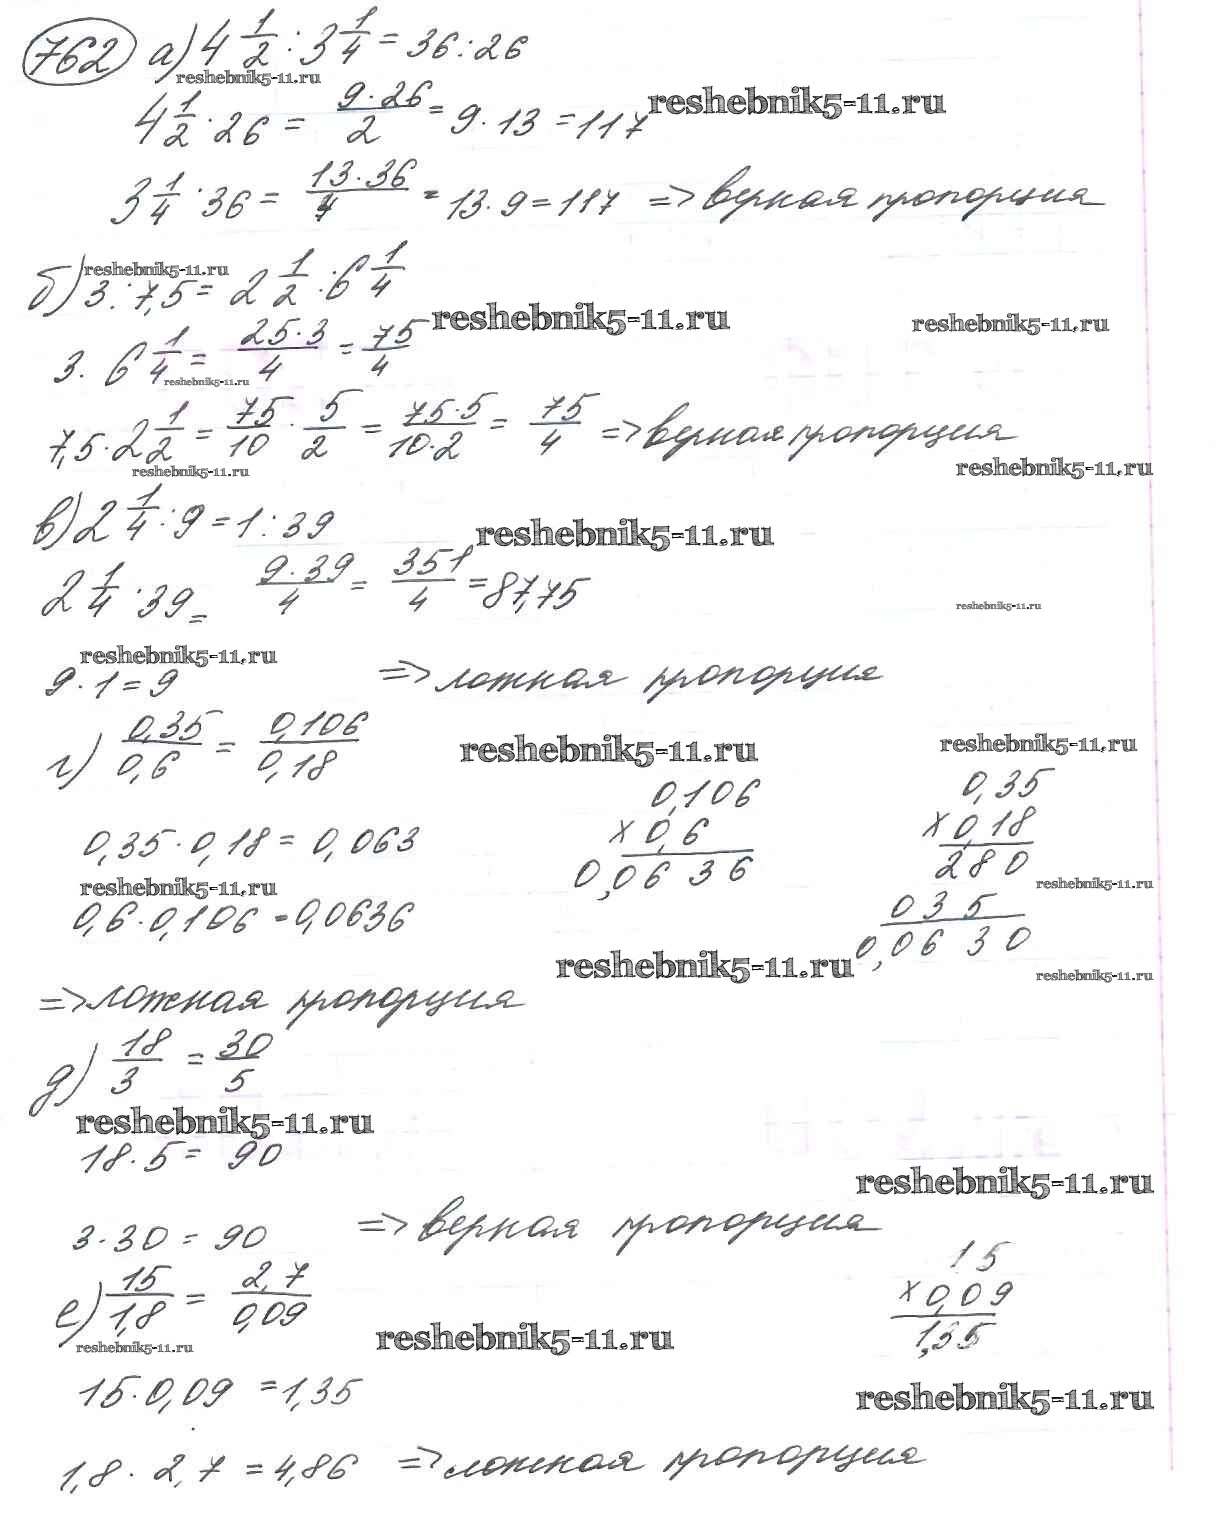 762 а) 4 1/2 : 3 1/4 = 36 : 26
reshebnik5-11.ru
4 1/2 · 26 = 9·26/2 = 9·13 = 117
reshebnik5-11.ru
3 1/4 · 36 = 13·36/4 = 13·9 = 117 => верная пропорция
reshebnik5-11.ru
б) 3 : 7,5 = 2 1/2 : 6 1/4
reshebnik5-11.ru
reshebnik5-11.ru
3 · 6 1/4 = 25·3/4 = 75/4
reshebnik5-11.ru
7,5 · 2 1/2 = 75/10 · 5/2 = 75·5/10·2 = 75/4 => верная пропорция
reshebnik5-11.ru
reshebnik5-11.ru
в) 2 1/4 : 9 = 1 : 39
reshebnik5-11.ru
2 1/4 · 39 = 9·39/4 = 351/4 = 87,75
reshebnik5-11.ru
reshebnik5-11.ru
9 · 1 = 9 => ложная пропорция
г) 0,35/0,6 = 0,106/0,18
reshebnik5-11.ru
reshebnik5-11.ru
0,106
× 0,6
0,0636
0,35
× 0,18
280
035
0,0630
0,35 · 0,18 = 0,063
reshebnik5-11.ru
reshebnik5-11.ru
0,6 · 0,106 = 0,0636
reshebnik5-11.ru
reshebnik5-11.ru
=> ложная пропорция
д) 18/3 = 30/5
reshebnik5-11.ru
18 · 5 = 90
reshebnik5-11.ru
3 · 30 = 90 => верная пропорция
е) 15/1,8 = 2,7/0,09
15
× 0,09
1,35
reshebnik5-11.ru
reshebnik5-11.ru
15 · 0,09 = 1,35
reshebnik5-11.ru
1,8 · 2,7 = 4,86 => ложная пропорция